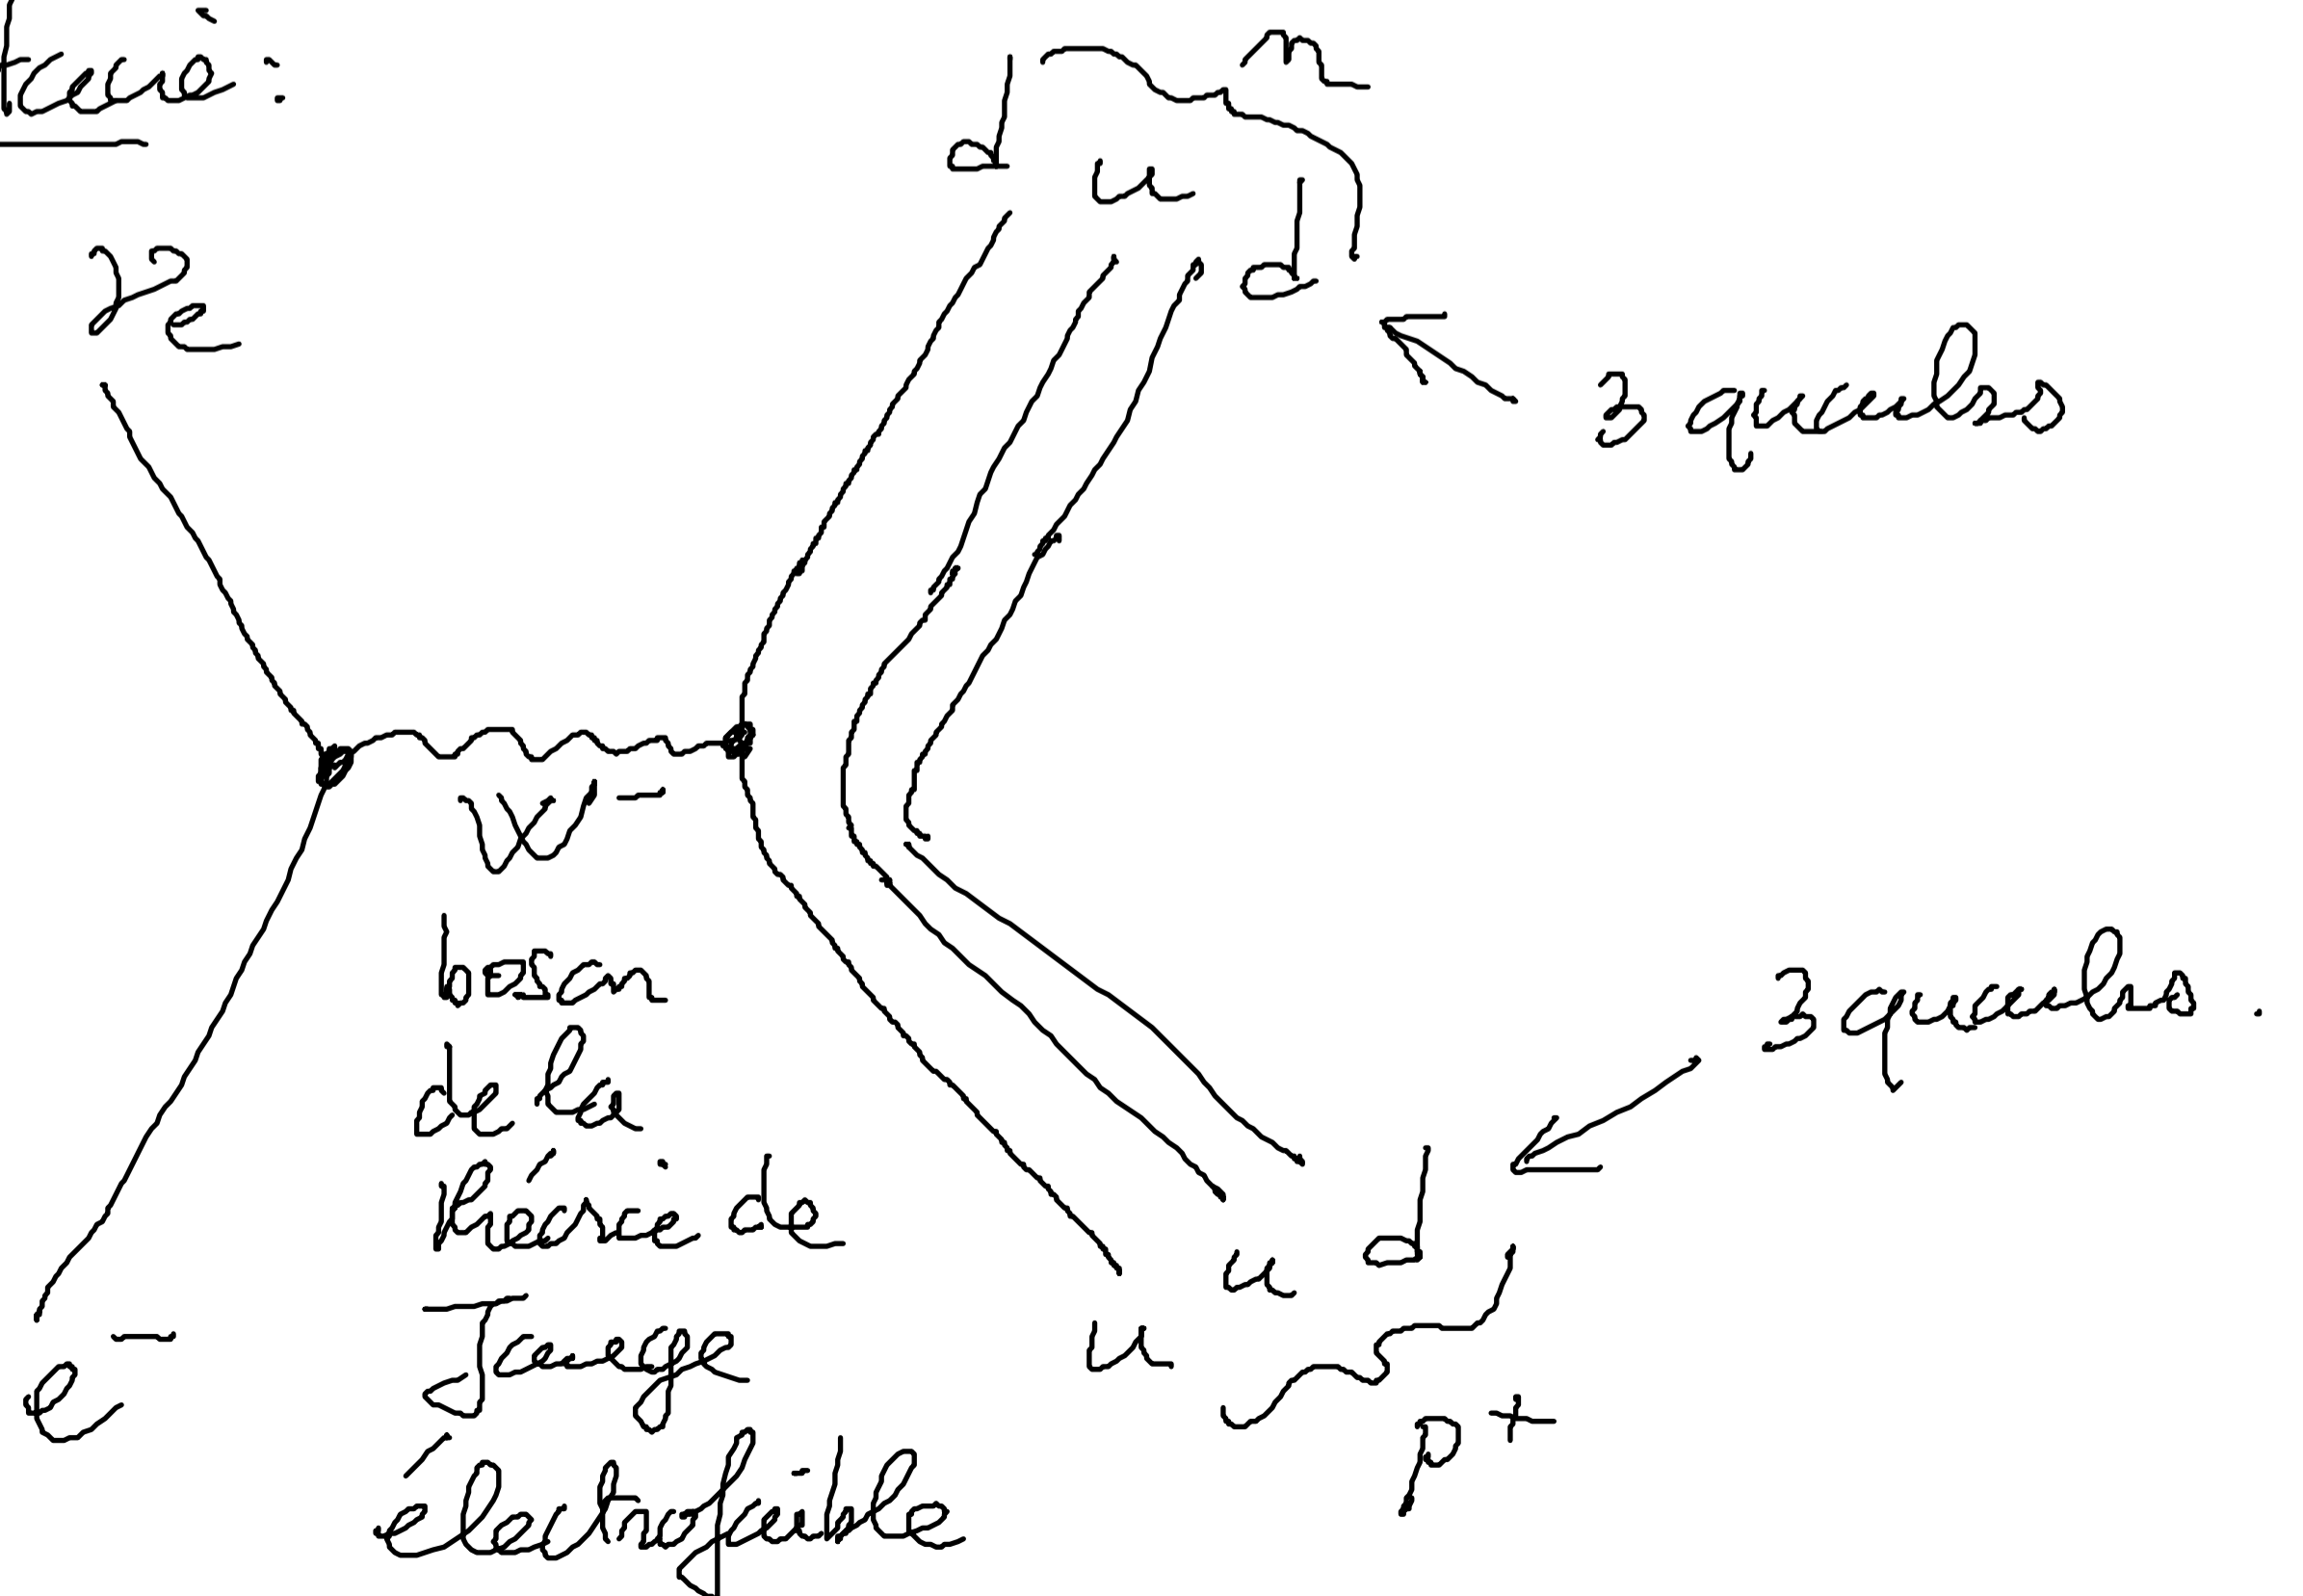 n
d
u
d
νe
3 quarks
W-
boson
de la
théorie de
Jauge
électrofaible
3 quarks.
d
u
u
e-
p+